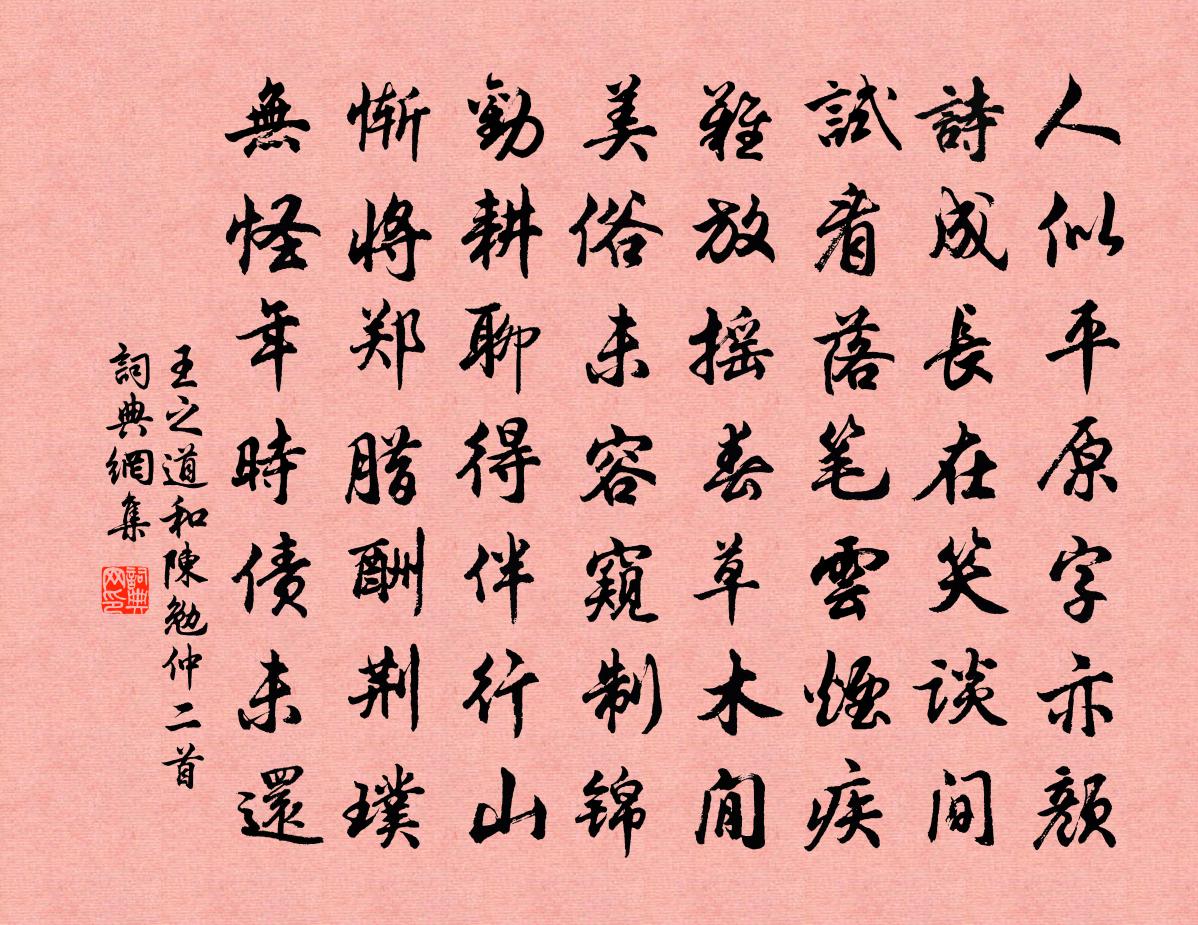 人似平原字亦顏
詩成長在笑談間
試看落笔雲煙疾
難放摇春草木閒
美俗未容窺制锦
勸耕聊得伴行山
慚將郑腊酬荆璞
無怪年時债未還
王之道和陳勉仲二首
詞典網集
詞典网印